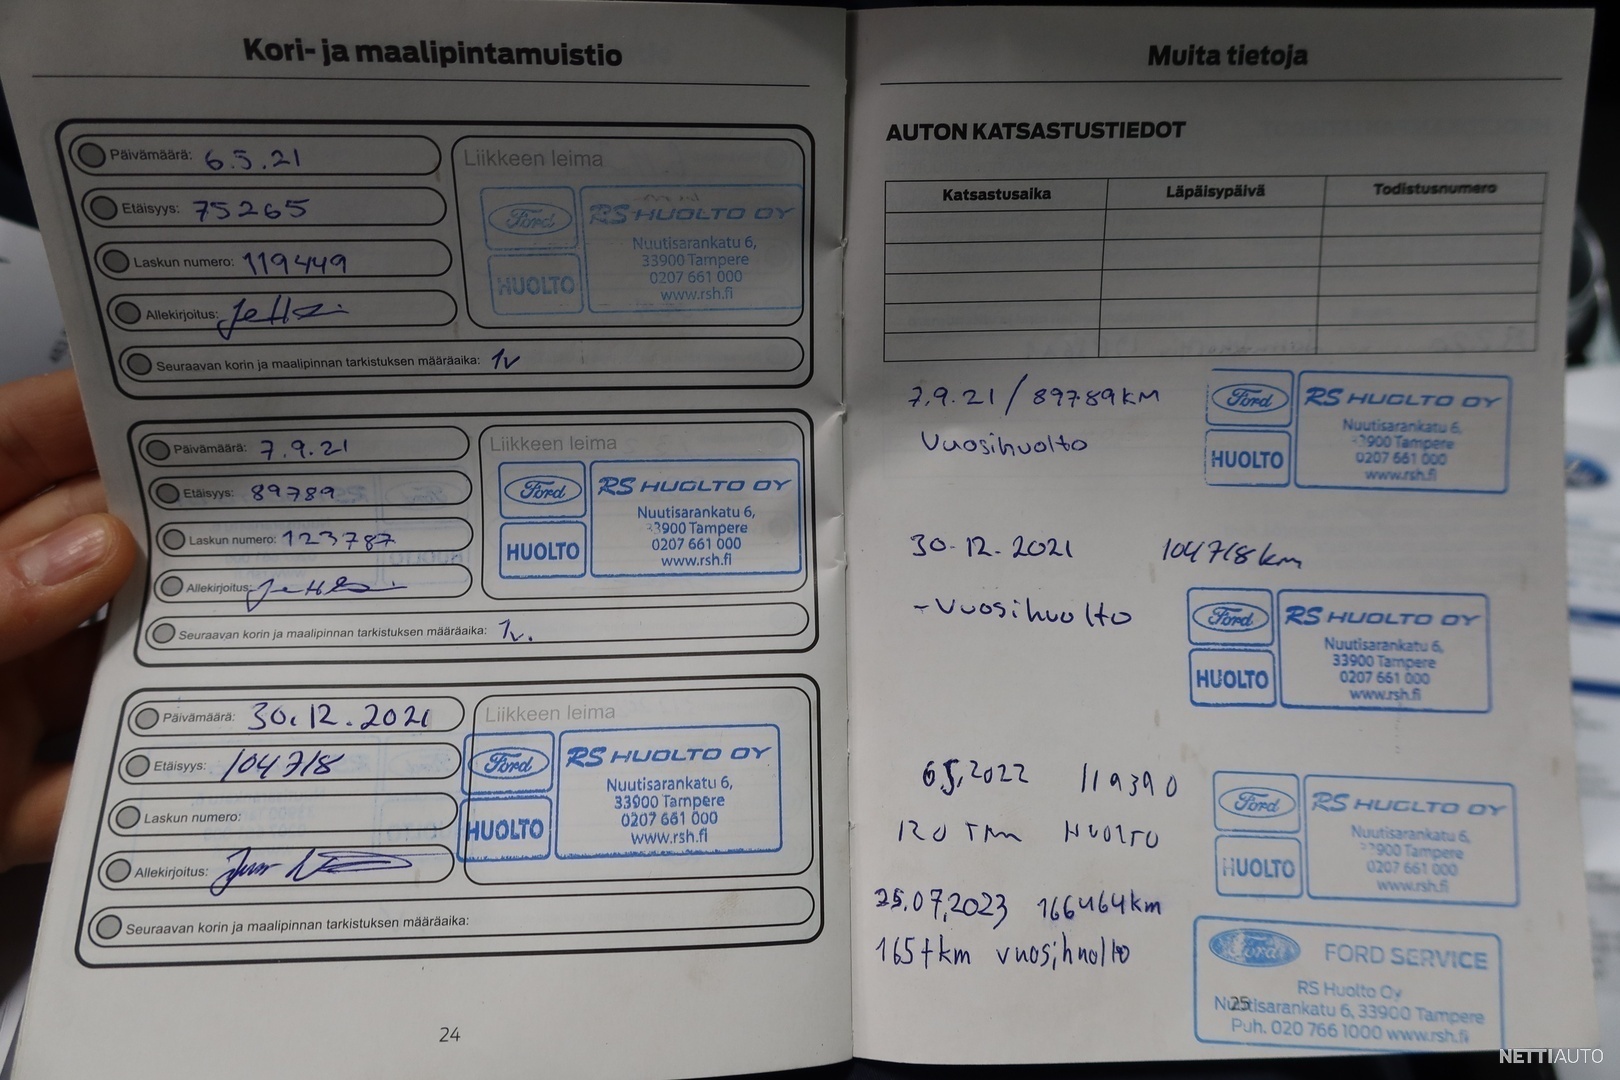 Kori- ja maalipintamuistio
Päivämäärä: 6.5.21
Etäisyys: 75265
Laskun numero: 119449
Allekirjoitus:
Seuraavan korin ja maalipinnan tarkistuksen määräaika: 1v
Liikkeen leima
Ford
HUOLTO
RS HUOLTO OY
Nuutisarankatu 6,
33900 Tampere
0207 661 000
www.rsh.fi
Päivämäärä: 7.9.21
Etäisyys: 89789
Laskun numero: 123787
Allekirjoitus:
Seuraavan korin ja maalipinnan tarkistuksen määräaika: 1v.
Liikkeen leima
Ford
HUOLTO
RS HUOLTO OY
Nuutisarankatu 6,
33900 Tampere
0207 661 000
www.rsh.fi
Päivämäärä: 30.12.2021
Etäisyys: 104718
Laskun numero:
Allekirjoitus:
Seuraavan korin ja maalipinnan tarkistuksen määräaika:
Liikkeen leima
Ford
HUOLTO
RS HUOLTO OY
Nuutisarankatu 6,
33900 Tampere
0207 661 000
www.rsh.fi
24
Muita tietoja
AUTON KATSASTUSTIEDOT
Katsastusaika Läpäisypäivä Todistusnumero
7.9.21 / 89789KM
Vuosihuolto
Ford
HUOLTO
RS HUOLTO OY
Nuutisarankatu 6,
33900 Tampere
0207 661 000
www.rsh.fi
30.12.2021 104718km
-Vuosihuolto
Ford
HUOLTO
RS HUOLTO OY
Nuutisarankatu 6,
33900 Tampere
0207 661 000
www.rsh.fi
6.5.2022 119390
120 TKM HUOLTO
Ford
HUOLTO
RS HUOLTO OY
Nuutisarankatu 6,
33900 Tampere
0207 661 000
www.rsh.fi
25.07.2023 166464km
165tkm vuosihuolto
Ford
FORD SERVICE
RS Huolto Oy
Nuutisarankatu 6, 33900 Tampere
Puh. 020 766 1000 www.rsh.fi
25
NETTIAUTO